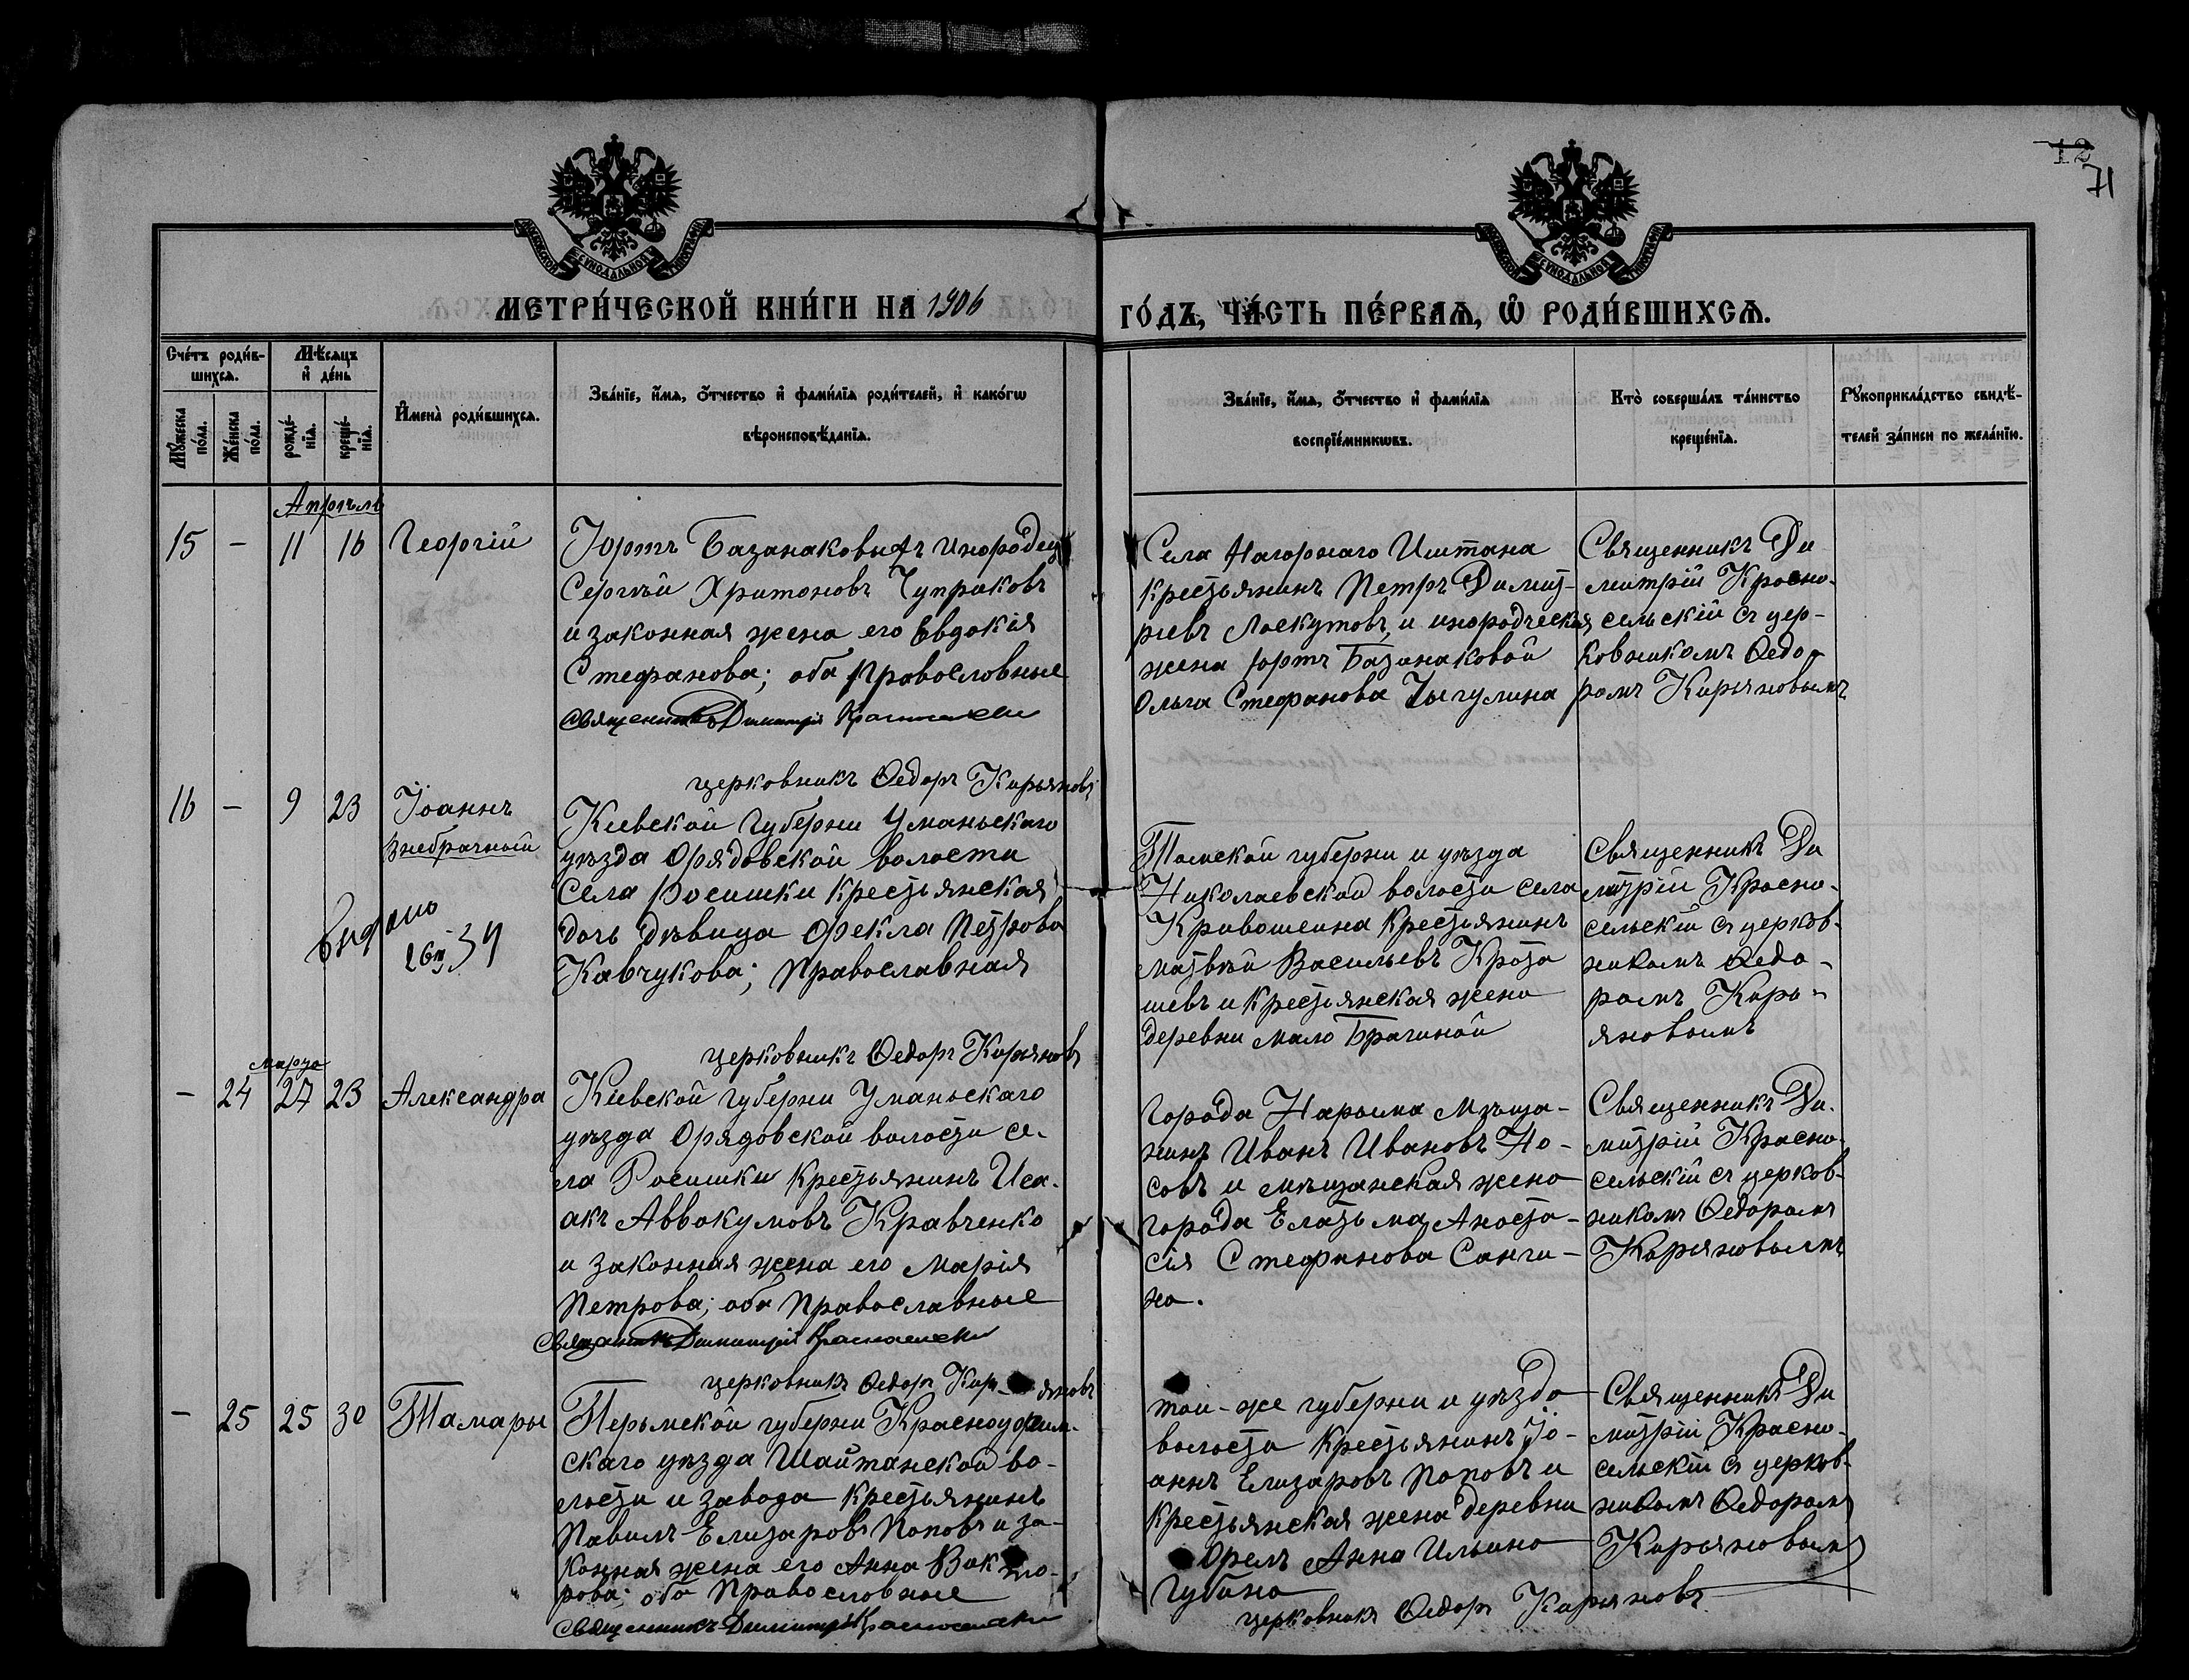 12
71
МЕТРИ́ЧЕСКОЙ КНИ́ГИ НА 1906
ГО́ДЪ, ЧА́СТЬ ПЕ́РВАѦ, Ѡ҆ РОДИ́ВШИХСѦ.
Сче́тъ роди́в-
шихсѧ.
Мѣ́сѧцъ
и҆ де́нь
Мꙋ́жеска
по́ла.
Же́нска
по́ла.
рожде́-
нїѧ.
креще́-
нїѧ.
И҆мена̀ роди́вшихсѧ.
Зва́нїе, и҆́мѧ, ѻ҆́тчество и҆ фами́лїѧ роди́телей, и҆ како́гѡ
вѣроисповѣ́данїѧ.
Зва́нїе, и҆́мѧ, ѻ҆́тчество и҆ фами́лїѧ
воспрїе́мникѡвъ.
Кто̀ соверша́лъ та́инство
креще́нїѧ.
Рꙋкоприкла́дство свидѣ́-
телей за́писи по жела́нїю.
Апрѣль
15 - 11 16 Георгій
Юртъ Базанаковыхъ инородец
Сергѣй Хритоновъ Чупраковъ
и законная жена его Евдокія
Стефанова; оба Православные
Священникъ Димитрій Красносельскій
Села Нагорнаго Иштана
крестьянинъ Петръ Димит-
ріевъ Лоскутовъ, и инородческая
жена юртъ Базанаковой
Ольга Стефанова Тыгулина
Священникъ Ди
митрій Красно-
сельскій съ цер-
ковникомъ Ѳедо-
ромъ Кирьяновымъ
церковникъ Ѳедоръ Кирьяновъ
16 - 9 23 Іоаннъ
Внебрачный
Кіевской губерни Уманьскаго
уѣзда Орядовской волости
села Росишки крестьянская
дочь дѣвица Ѳекла Петрова
Кавчукова; Православная
Томской губерни и уѣзда
Николаевской волости села
Кривошеина крестьянинъ
Матвѣй Васильевъ Крота
шевъ и крестьянская жена
деревни Мало Брагиной
Священникъ Ди
митрій Красно-
сельскій съ церков-
никомъ Ѳедо-
ромъ Кирь-
яновымъ
церковникъ Ѳедоръ Кирьяновъ
марта
- 24 27 23 Александра
Кіевской губерни Уманьскаго
уѣзда Орядовской волости се-
ла Росишки крестьянинъ Иса-
акъ Аввакумовъ Кравченко
и законная жена его Марія
Петрова; оба Православные
Священникъ Димитрій Красносельскій
Города Нарыма мѣща-
нинъ Иванъ Ивановъ Но-
совъ и мѣщанская жена
города Елатьма Анаста-
сія Стефанова Санги-
на.
Священникъ Ди-
митрій Красно-
сельскій съ церков-
никомъ Ѳедоромъ
Кирьяновымъ
церковникъ Ѳедоръ Кирьяновъ
- 25 25 30 Тамары
Перьмской губерни Красноуфим-
скаго уѣзда Шайтанской во-
лости и завода крестьянинъ
Павилъ Елизаровъ Поповъ и за-
конная жена его Анна Викто-
рова; оба Православные
Священникъ Димитрій Красносельскій
той-же губерни и уѣзда
волости крестьянинъ Іо-
аннъ Елизаровъ Поповъ и
крестьянская жена деревни
Орелъ Анна Ильина
Губина
Священникъ Ди
митрій Красно-
сельскій съ церков-
никомъ Ѳедоромъ
Кирьяновым
церковникъ Ѳедоръ Кирьяновъ